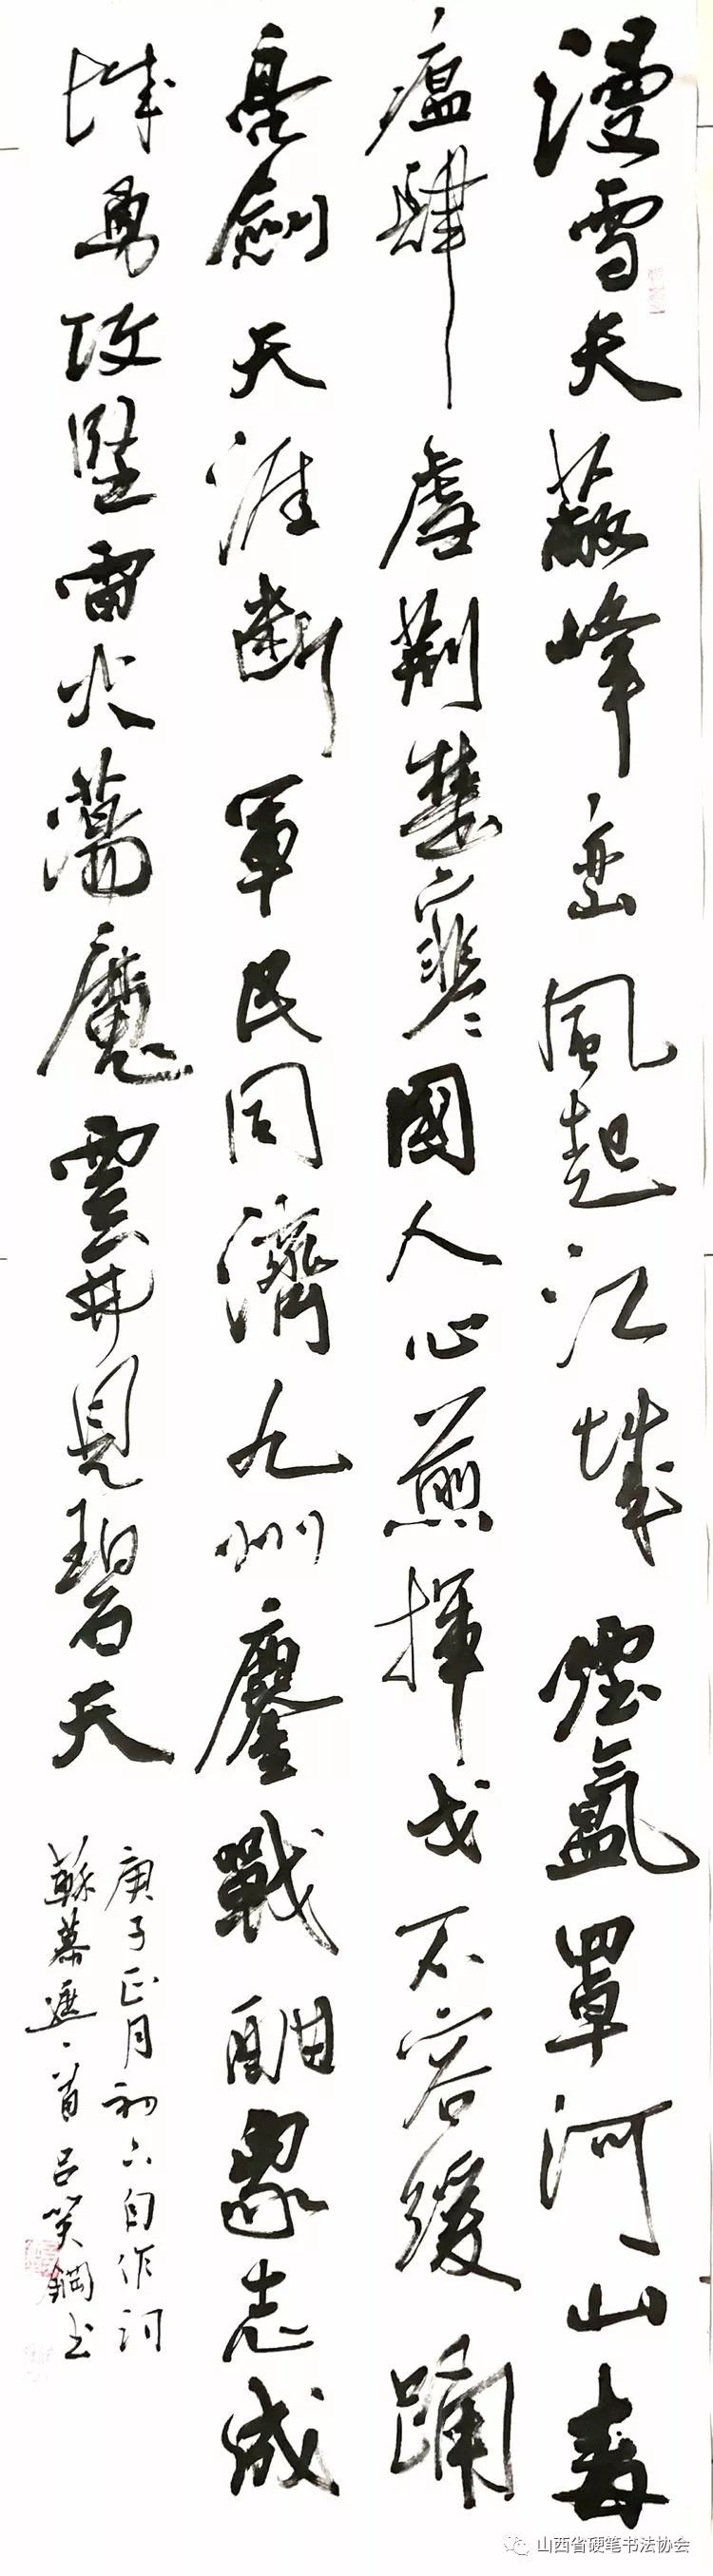 漫雪天蔽峰峦風起江城煙氳罩河山毒
瘟肆虐荆楚寒國人心煎揮戈不容緩踊
亮劍天涯斷軍民同濟九州鏖戰酣眾志成
城勇攻堅雷火蕩魔雲开見碧天
庚子正月初六自作詞
蘇幕遮一首吕笑鋼书
山西省硬笔书法协会